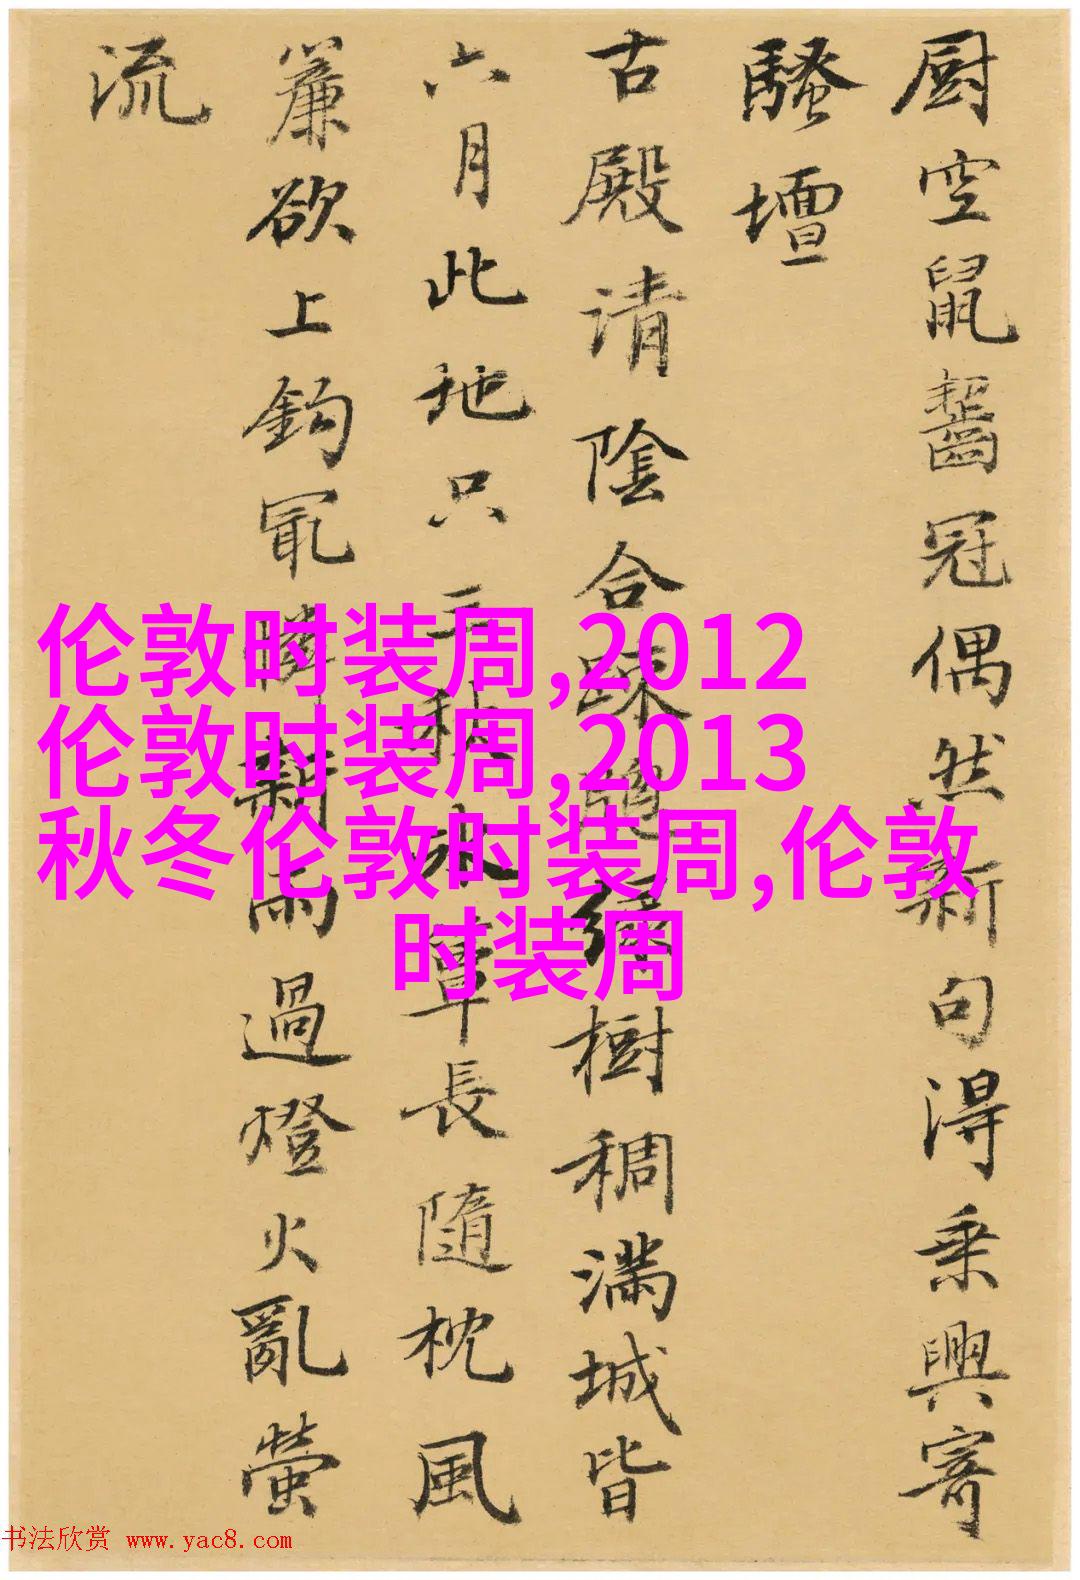 厨空鼠齧冠偶然新句得乘興寄
騷壇
古殿请陰合踈牕緑樹稠满城皆
六月此地只三秋水簟長隨枕風
簾欲上鈎冣憐新雨過燈火亂螢
流
伦敦时装周,2012
伦敦时装周,2013
秋冬伦敦时装周,伦敦
时装周
书法欣赏 www.yac8.com